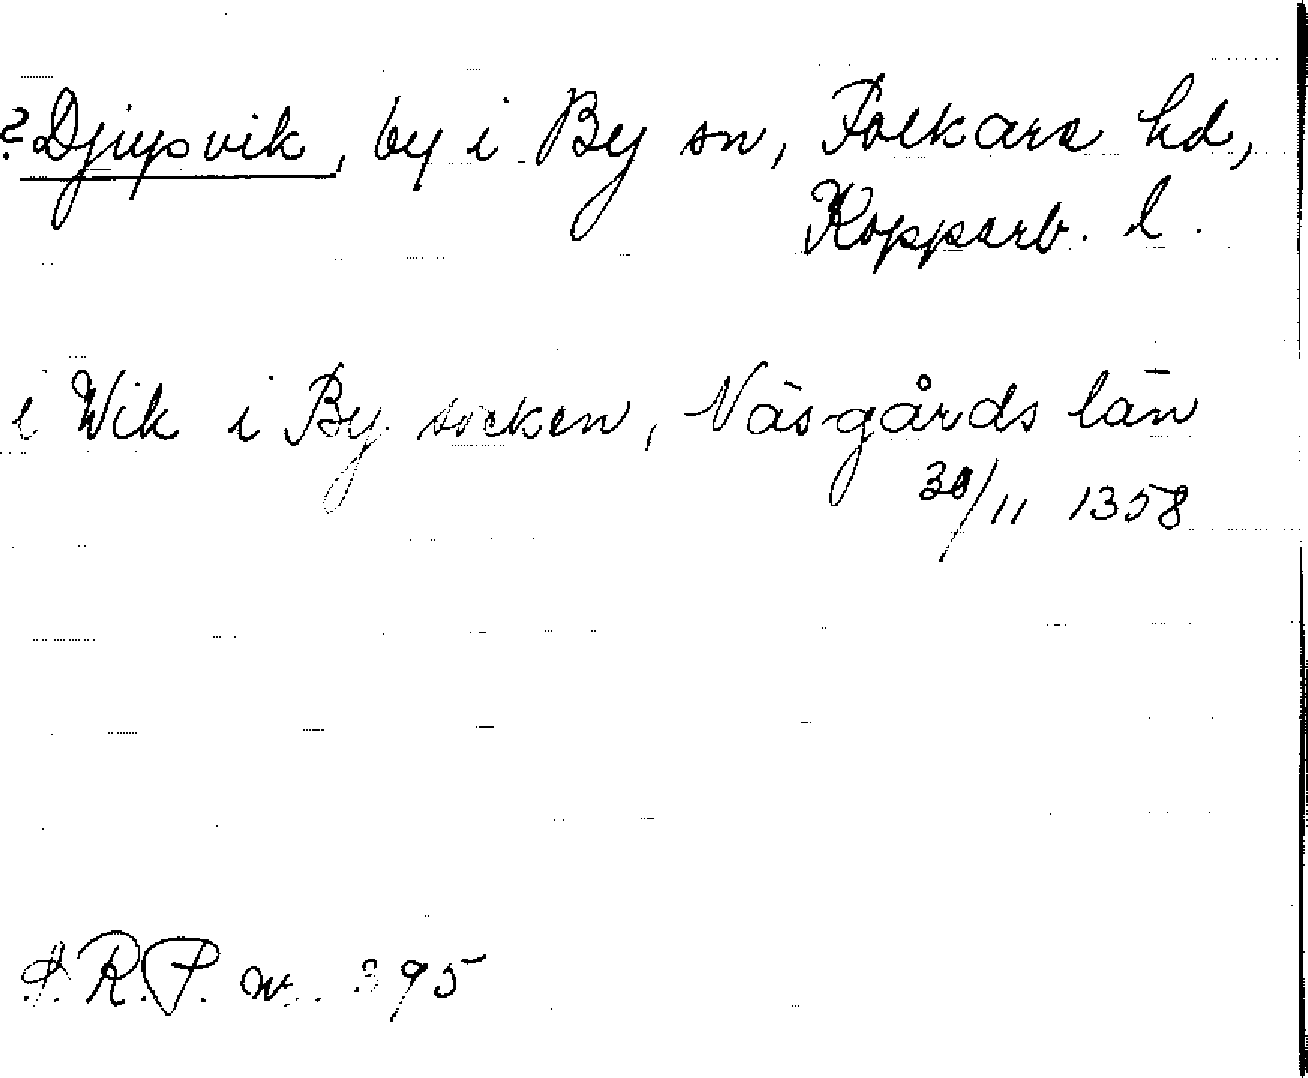 ? Djupsvik, by i By sn, Folkare hd,
Kopparb. l.
i Wik i By socken, Näsgårds län
30/11 1358
S.R.P. nr. 395